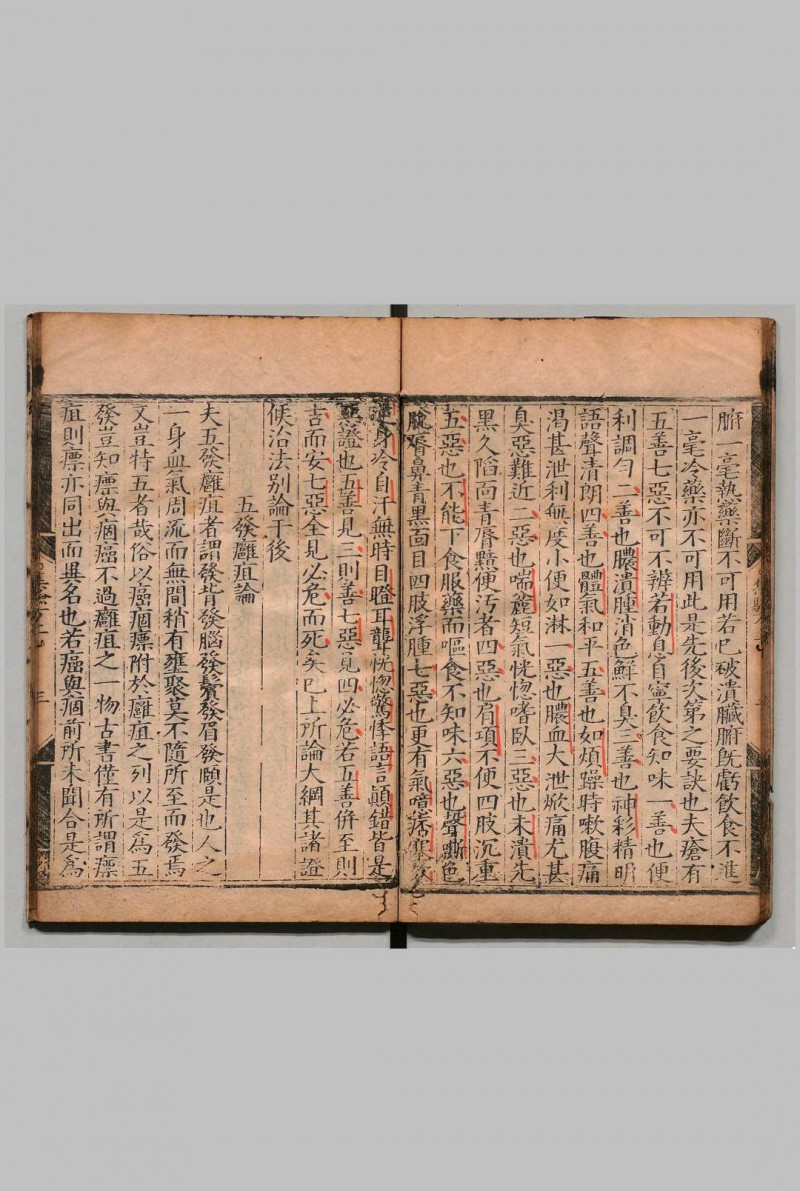 腑一毫熱藥斷不可用若巳破潰臟腑旣虧飮食不進
一毫冷藥亦不可用此是先後次第之要訣也夫瘡有
五善七惡不可不辨若動息自寧飮食知味一善也便
利調勻二善也膿潰腫消色鮮不臭三善也神彩精明
語聲清朗四善也體氣和平五善也如煩躁時嗽腹痛
渴甚泄利無度小便如淋一惡也膿血大泄焮痛尤甚
臭惡難近二惡也喘麄短氣恍惚嗜臥三惡也未潰先
黑久陷面青唇黯便汚者四惡也肩項不便四肢沉重
五惡也不能下食服藥而嘔食不知味六惡也聲嘶色
脫唇鼻青黑面目四肢浮腫七惡也更有氣噫痞塞
身冷自汗無時目瞪耳聾恍惚驚悸語言顛錯皆是
惡證也五善見三則善七惡見四必危若五善倂至則
吉而安七惡全見必危而死矣巳上所論大綱其諸證
候治法別論于後
五發癰疽論
夫五發癰疽者謂發背發腦發鬢發眉發頤是也人之
一身血氣周流而無間稍有壅聚莫不隨所至而發焉
又豈特五者哉俗以癌痼瘭附於癰疽之列以是爲五
發豈知瘭與痼癌不過癰疽之一物古書僅有所謂瘭
疽則瘭亦同出而異名也若癌與痼前所未聞合是爲
三